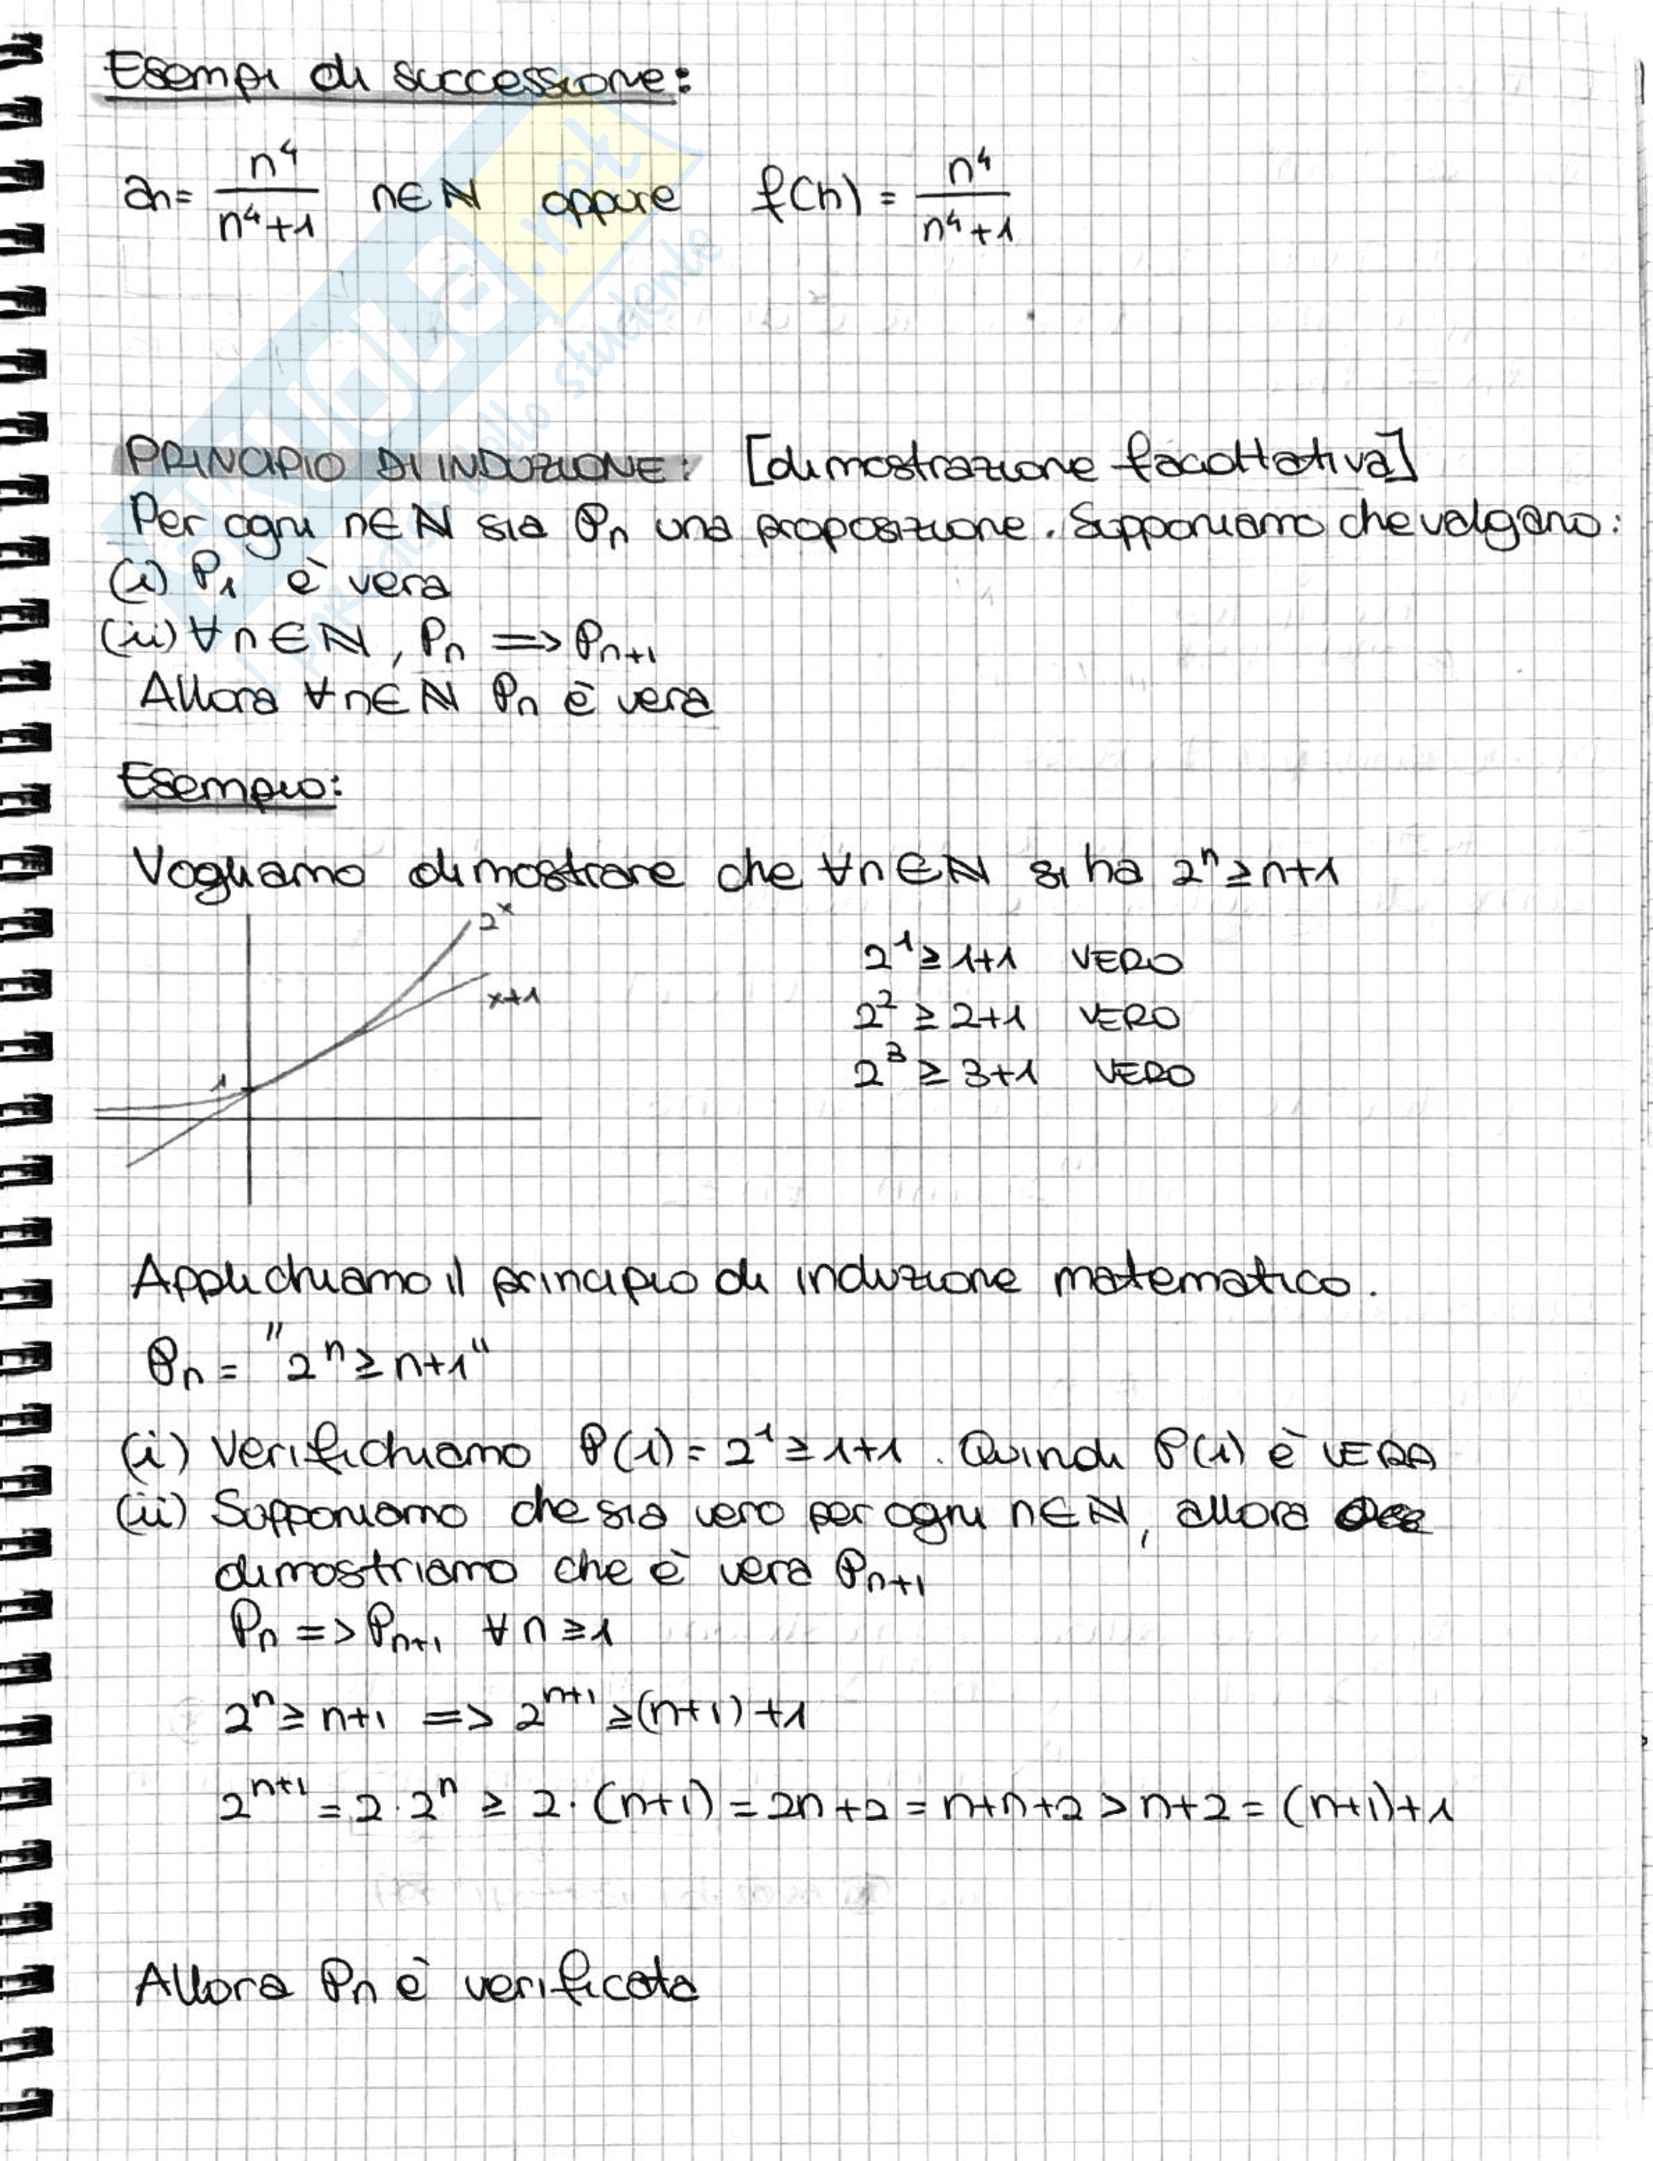 Esempi di successione:
an = n⁴/(n⁴+1) n∈ℕ oppure f(n) = n⁴/(n⁴+1)
PRINCIPIO DI INDUZIONE: [dimostrazione facoltativa]
Per ogni n∈ℕ sia Pn una proposizione. Supponiamo che valgano:
(i) P₁ è vera
(ii) ∀n∈ℕ, Pn => Pn+1
Allora ∀n∈ℕ Pn è vera
Esempio:
Vogliamo dimostrare che ∀n∈ℕ si ha 2ⁿ≥n+1
2ˣ
x+1
1
2¹≥1+1 VERO
2²≥2+1 VERO
2³≥3+1 VERO
Applichiamo il principio di induzione matematico.
Pn = "2ⁿ≥n+1"
(i) Verifichiamo P(1) = 2¹≥1+1. Quindi P(1) è VERA
(ii) Supponiamo che sia vero per ogni n∈ℕ, allora
dimostriamo che è vera Pn+1
Pn => Pn+1 ∀n≥1
2ⁿ≥n+1 => 2ⁿ⁺¹≥(n+1)+1
2ⁿ⁺¹ = 2·2ⁿ ≥ 2·(n+1) = 2n+2 = n+n+2 > n+2 = (n+1)+1
Allora Pn è verificata
.net